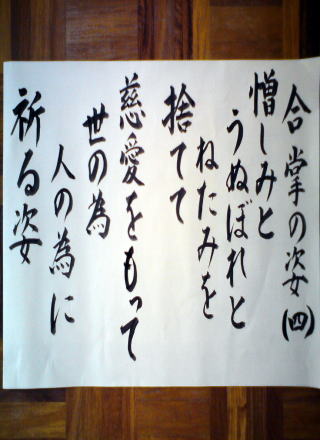 合掌の姿(四)
憎しみと
うぬぼれと
ねたみを
捨てて
慈愛をもって
世の為
人の為に
祈る姿